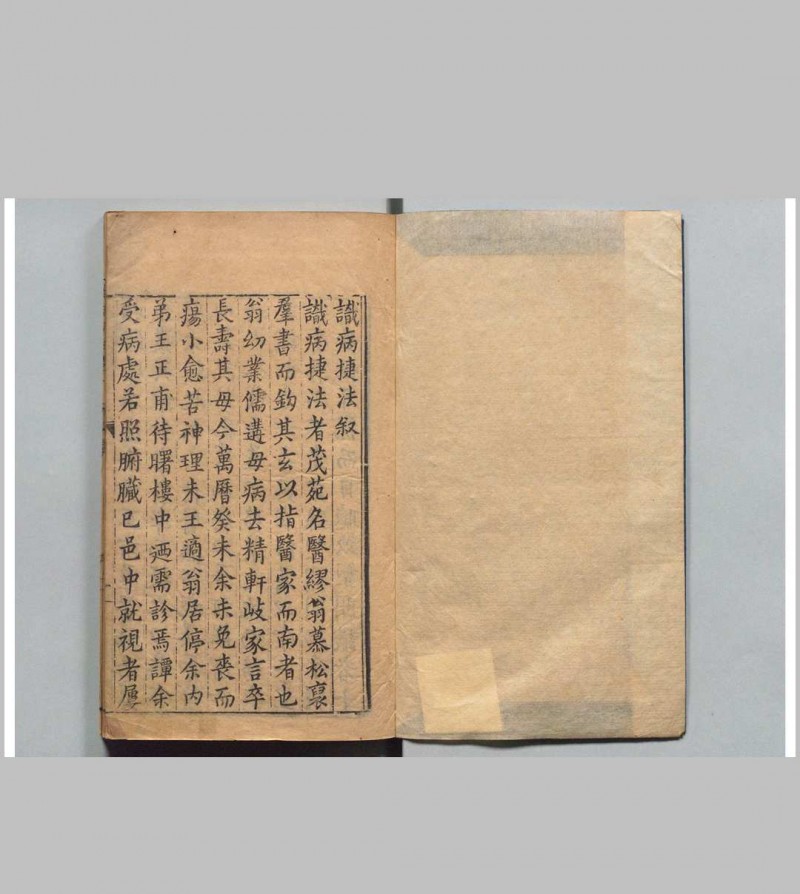 識病捷法叙
識病捷法者茂苑名醫繆翁慕松裒
羣書而鈎其玄以指醫家而南者也
翁幼業儒遘母病去精軒岐家言卒
長壽其母今萬曆癸未余未免喪而
瘍小愈苦神理未王適翁居停余内
弟王正甫待曙樓中迺需診焉譚余
受病處若照腑臟已邑中就視者屢